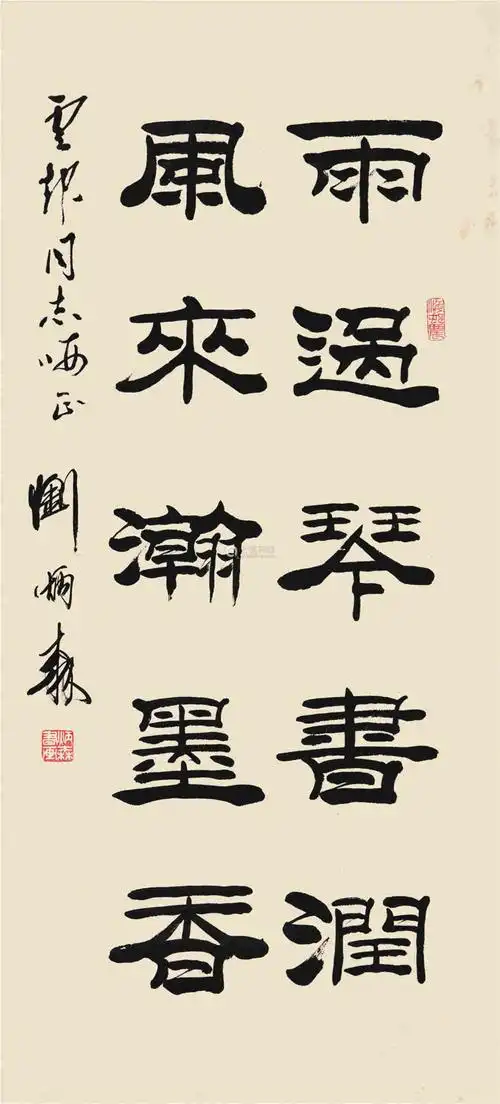 雨過琴書潤
風來瀚墨香
雲龍同志哂正
劉炳森